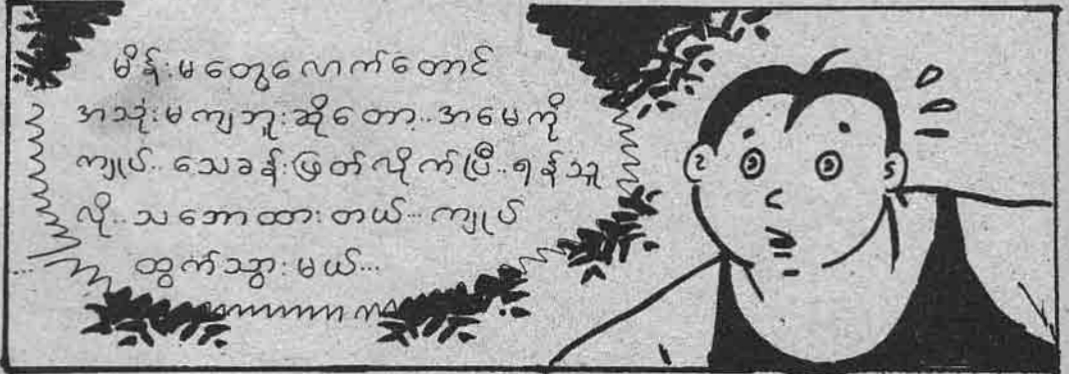 မိန်းမတွေလောက်တောင်
အသုံးမကျဘူးဆိုတော့..အမေကို
ကျုပ်..သေခန်းဖြတ်လိုက်ပြီ..ရန်သူ
လို..သဘောထားတယ်...ကျုပ်
ထွက်သွားမယ်...